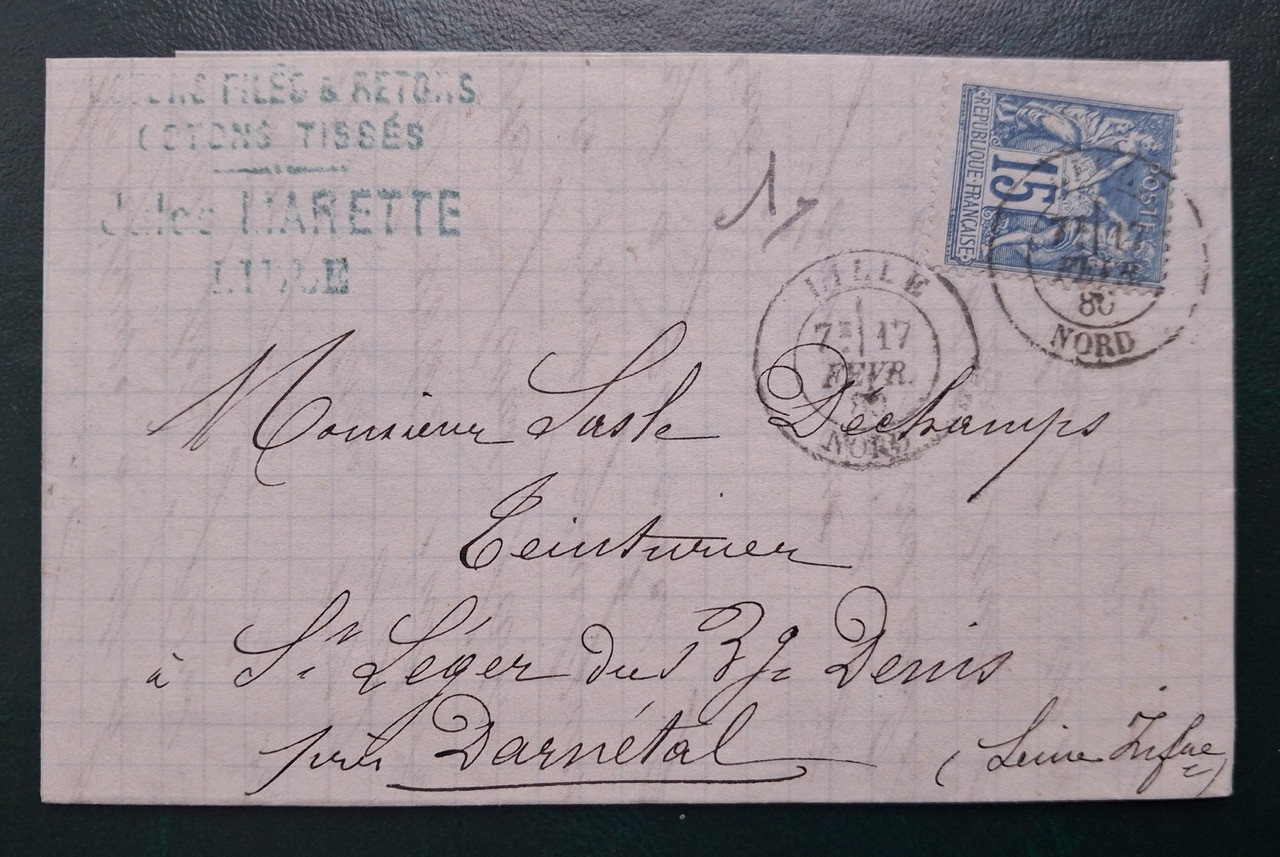 COTONS FILÉS & RETORS
COTONS TISSÉS
Jules MARETTE
LILLE
REPUBLIQUE FRANÇAISE
15
POSTE
17
FEVR
80
NORD
LILLE
7E 17
FEVR.
80
NORD
Monsieur Déchamps
Teinturier
à St Léger du Bg Denis
près Darnétal
(Seine Infre)